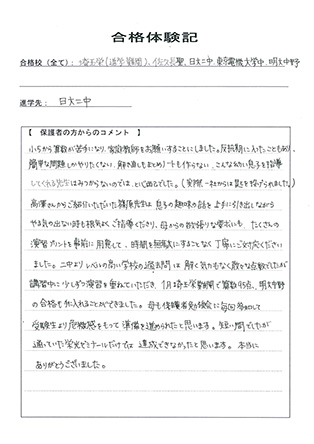 合格体験記
合格校（全て）：埼玉栄(進学難関)、佐久長聖、日大二中、東京電機大学中、明大中野
進学先：日大二中
【 保護者の方からのコメント 】
小5から算数が苦手になり、家庭教師をお願いすることにしました。反抗期に入ったこともあり、
簡単な問題しかやりたくない、解き直しもまとめノートも作らない、こんな幼い息子を指導
してくれる先生はみつからないのでは、と心配でした。(実際、一社からは
ご紹介いただいた篠原先生は息子の趣味の話を上手に引き出しながら
やる気の出ない時も根気よくご指導くださり、母からの欲張りな要求にも、たくさんの
演習プリントを事前に用意して、時間を無駄にすることなく丁寧にご対応ください
ました。二中よりレベルの高い学校の過去問は解く気力もなく散々な点数でしたが
講習中に少しずつ演習を重ねていただき、1月埼玉栄難関で算数95点、明大中野
の合格も手に入れることができました。母も保護者勉強会に毎回参加して
受験生より危機感をもって準備を進められたと思います。短い間でしたが
通っていた栄光ゼミナールだけでは達成できなかったと思います。本当に
ありがとうございました。